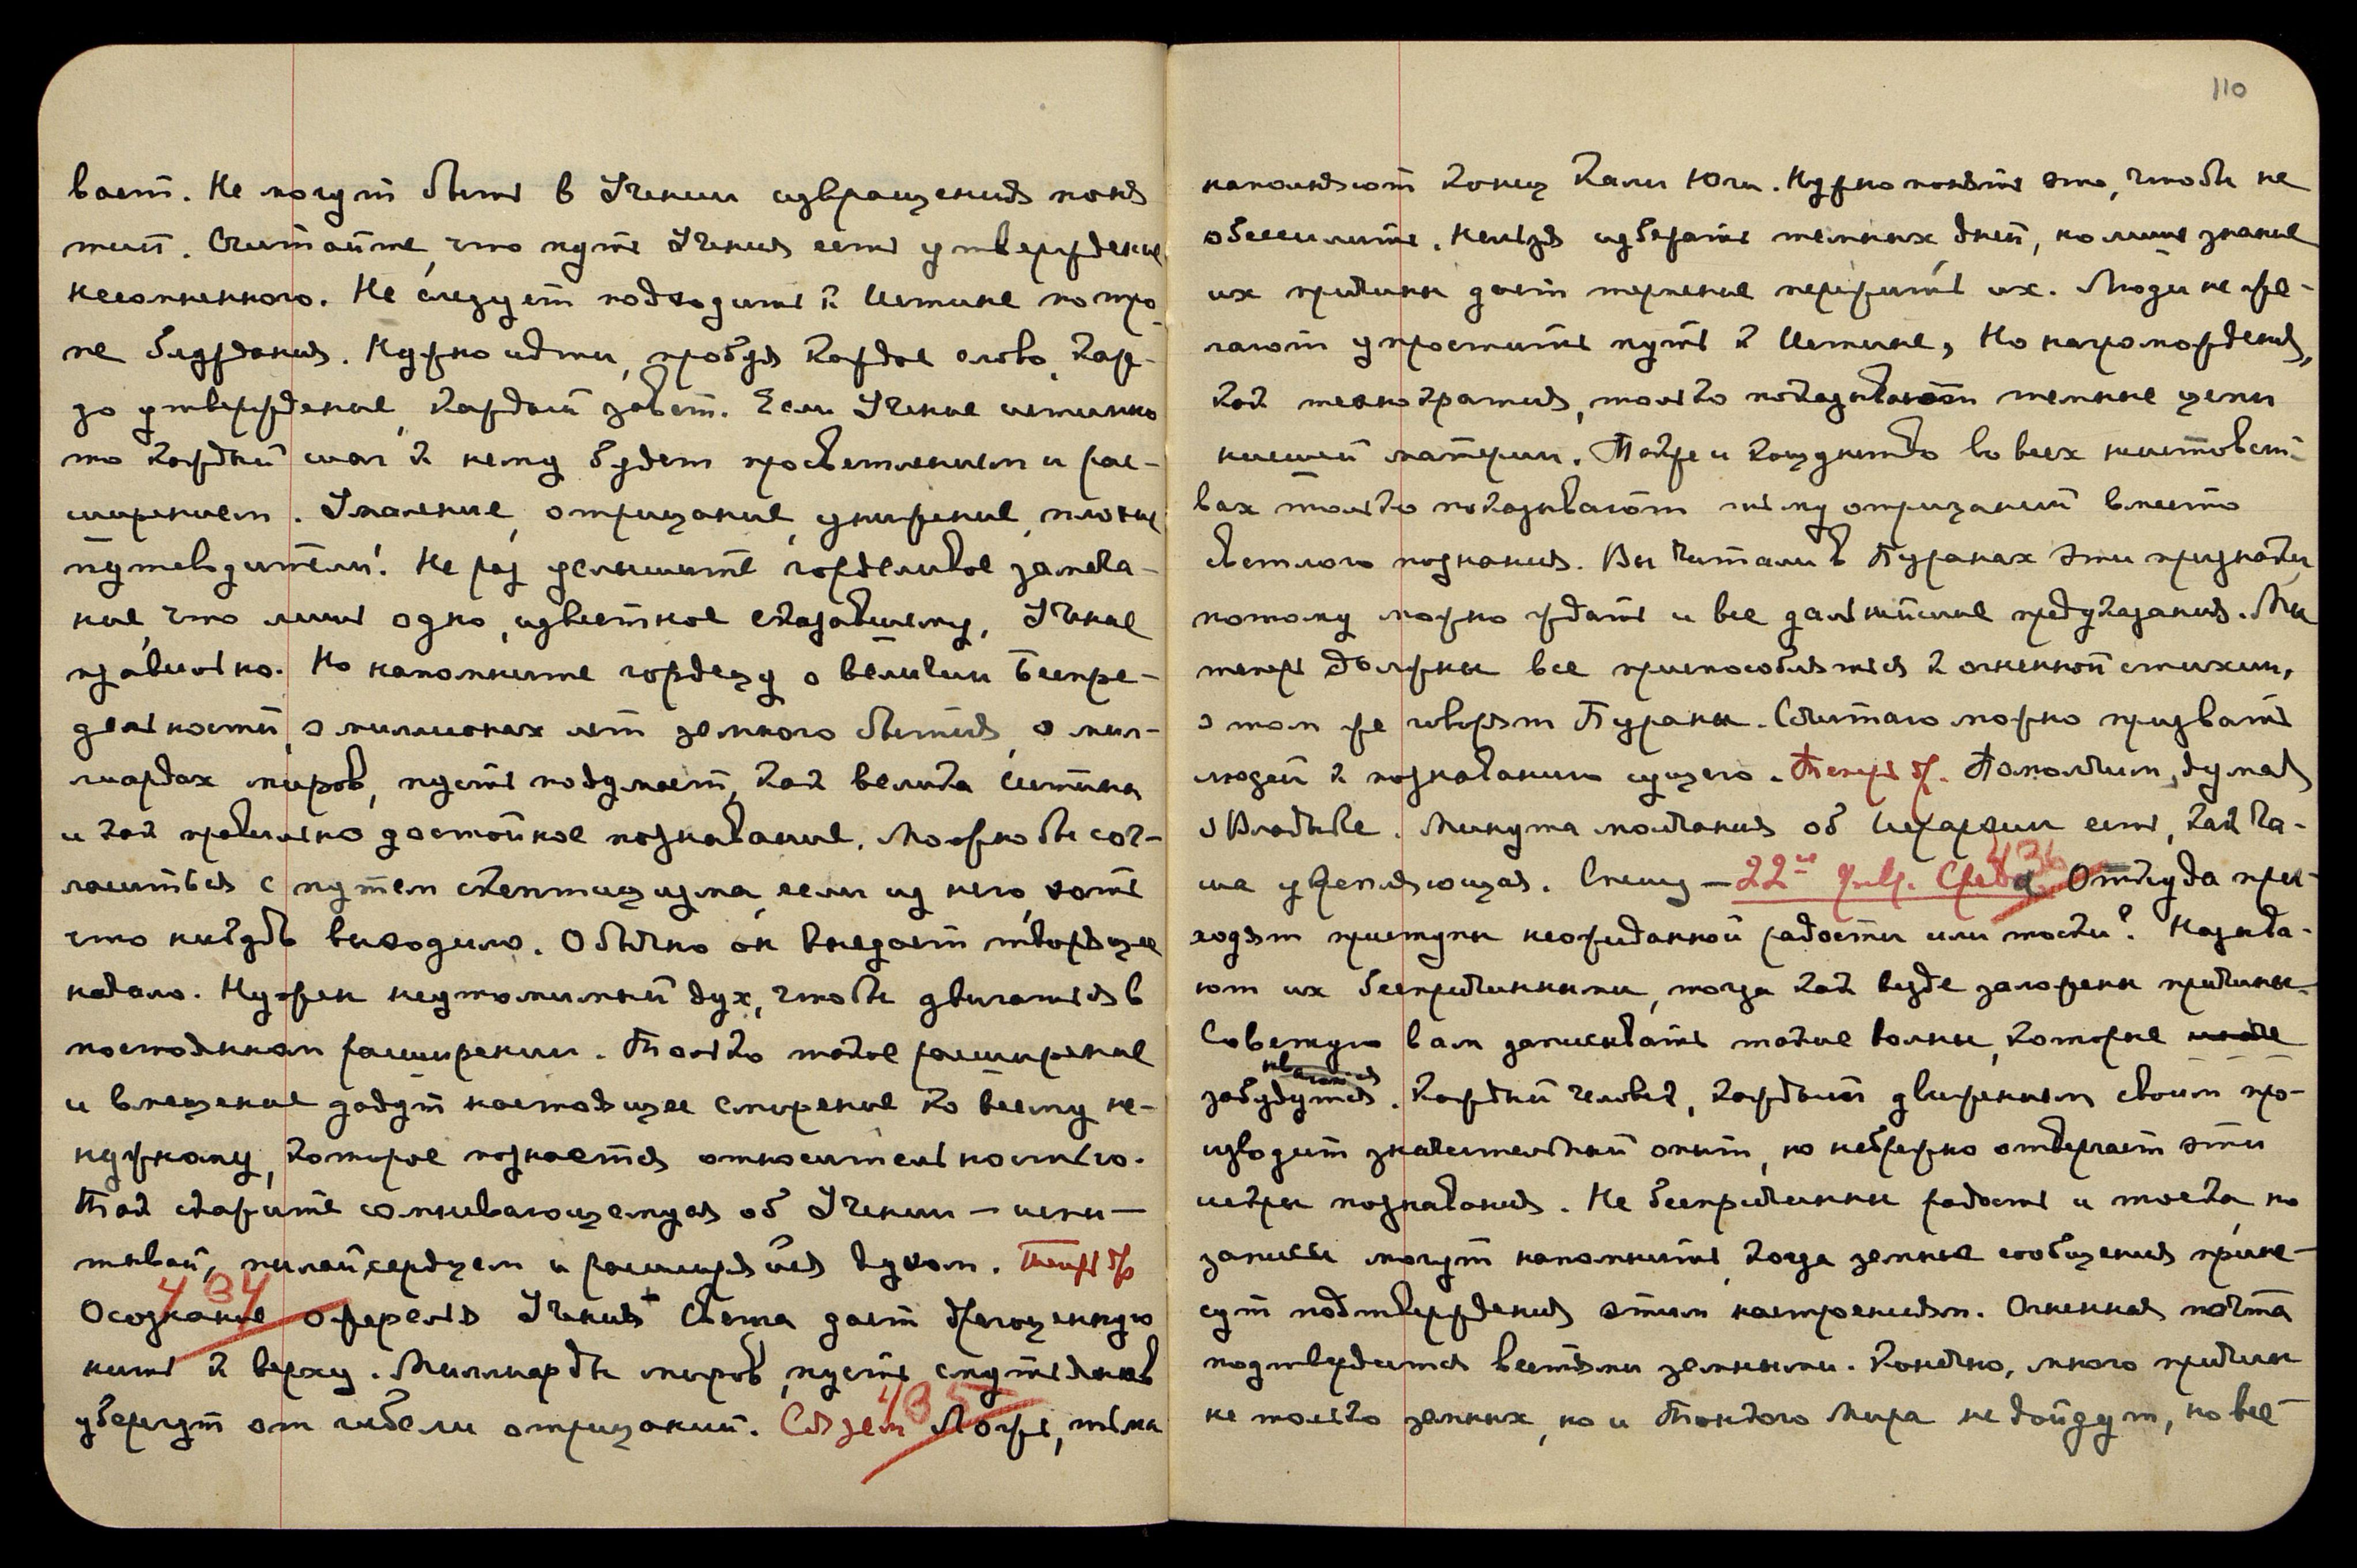 вает. Не могут быть в Учении извращения поня
тий. Считайте, что путь Учения есть утверждение
несомненного. Не следует подходить к Истине по тро
пе блуждания. Нужно идти, пробуя каждое слово, каж-
до утверждение, каждый завет. Если Учение истинно
то каждый шаг к нему будет просветлением и рас-
ширением. Умаление, отрицание, унижение, плохие
путеводители! Не раз услышите горделивое замеча-
ние, что лишь одно, известное сказавшему, Учение
правильно. Но напомните гордецу о величии Беспре-
дельности, о миллионах лет земного бытия, о мил-
лиардах миров, пусть подумает, как велика Истина
и как правильно достойное познавание. Можно бы сог-
ласиться с путем скептицизма, если из него хоть
что нибудь выходило. Обычно он внедает творящее
начало. Нужен неутомимый дух, чтобы двигаться в
постоянном расширении. Только такое расширение
и вмещение дадут настоящее смирение ко всему не-
нужному, которое познается относительностью.
Так скажите сомневающемуся об Учении – испы –
тывай, пылай сердцем и расширяйся духом. Теперь др
434
Осознание ожерелья Учения Света дает драгоценную
нить к верху. Миллиарды миров пусть смутьянов
уберегут от гибели отрицаний. Создем 435 Ложь, тьма
110
наполняют конец Кали Юги. Нужно понять это, чтобы не
обессилить. Нельзя избежать темных дней, но лишь знание
их причины дает терпение пережить их. Люди не же-
лают упростить путь к Истине, Но нагромождения,
как технократия, только показывают темные цепи
низшей материи. Также и кощунство во всех неистовст-
вах только показывают тьму отрицаний вместо
светлого познания. Вы читали в Пуранах эти признаки,
потому можно ждать и все дальнейшие предуказания. Мы
теперь должны все приспособляться к огненной стихии,
о том же говорят Пураны. Считаю можно призвать
людей к познаванию сущего. Теперь др. Помолчим, думая
о Владыке. Минута молчания об Иерархии есть, как ча-
ша укрепляющая. Спешу – 22го февр. Среда 436 Откуда при-
ходят приступы неожиданной радости или тоски? Называ-
ют их беспричинными, тогда как везде заложены причины.
Советую вам записывать такие волны, которые иначе
забудутся. Каждый человек, каждым движением своим про-
изводит значительный опыт, но небрежно отвергает эти
искры познавания. Не беспричинны радость и тоска, но
записи могут напомнить, когда земные сообщения прине-
сут подтверждения этим настроениям. Огненная почта
подтвердится вестями земными. Конечно, много причин
не только земных, но и Тонкого Мира не дойдут, но всё